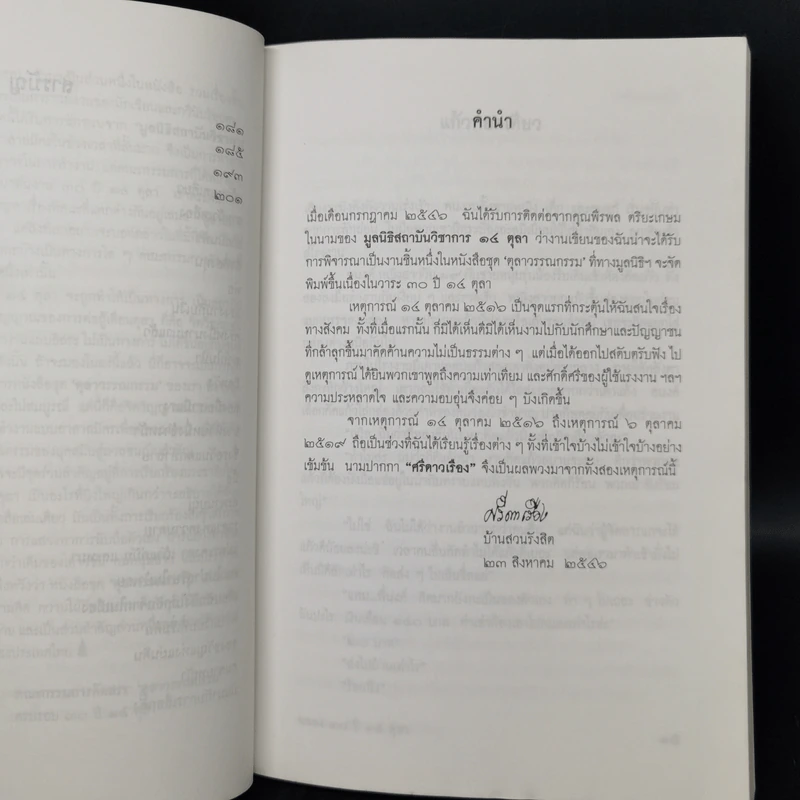 สารบัญ
๑๘๑
๑๘๕
๑๙๓
๒๐๑
คำนำ
เมื่อเดือนกรกฎาคม ๒๕๔๖ ฉันได้รับการติดต่อจากคุณพีรพล ตริยะเกษม
ในนามของ มูลนิธิสถาบันวิชาการ ๑๔ ตุลา ว่างานเขียนของฉันน่าจะได้รับ
การพิจารณาเป็นงานชิ้นหนึ่งในหนังสือชุด ‘ตุลาวรรณกรรม’ ที่ทางมูลนิธิฯ จะจัด
พิมพ์ขึ้นเนื่องในวาระ ๓๐ ปี ๑๔ ตุลา
เหตุการณ์ ๑๔ ตุลาคม ๒๕๑๖ เป็นจุดแรกที่กระตุ้นให้ฉันสนใจเรื่อง
ทางสังคม ทั้งที่เมื่อแรกนั้น ก็มิได้เห็นดีมิได้เห็นงามไปกับนักศึกษาและปัญญาชน
ที่กล้าลุกขึ้นมาคัดค้านความไม่เป็นธรรมต่าง ๆ แต่เมื่อได้ออกไปสดับตรับฟัง ไป
ดูเหตุการณ์ ได้ยินพวกเขาพูดถึงความเท่าเทียม และศักดิ์ศรีของผู้ใช้แรงงาน ฯลฯ
ความประหลาดใจ และความอบอุ่นจึงค่อย ๆ บังเกิดขึ้น
จากเหตุการณ์ ๑๔ ตุลาคม ๒๕๑๖ ถึงเหตุการณ์ ๖ ตุลาคม
๒๕๑๙ ถือเป็นช่วงที่ฉันได้เรียนรู้เรื่องต่าง ๆ ทั้งที่เข้าใจบ้างไม่เข้าใจบ้างอย่าง
เข้มข้น นามปากกา “ศรีดาวเรือง” จึงเป็นผลพวงมาจากทั้งสองเหตุการณ์นี้
ศรีดาวเรือง
บ้านสวนรังสิต
๒๓ สิงหาคม ๒๕๔๖